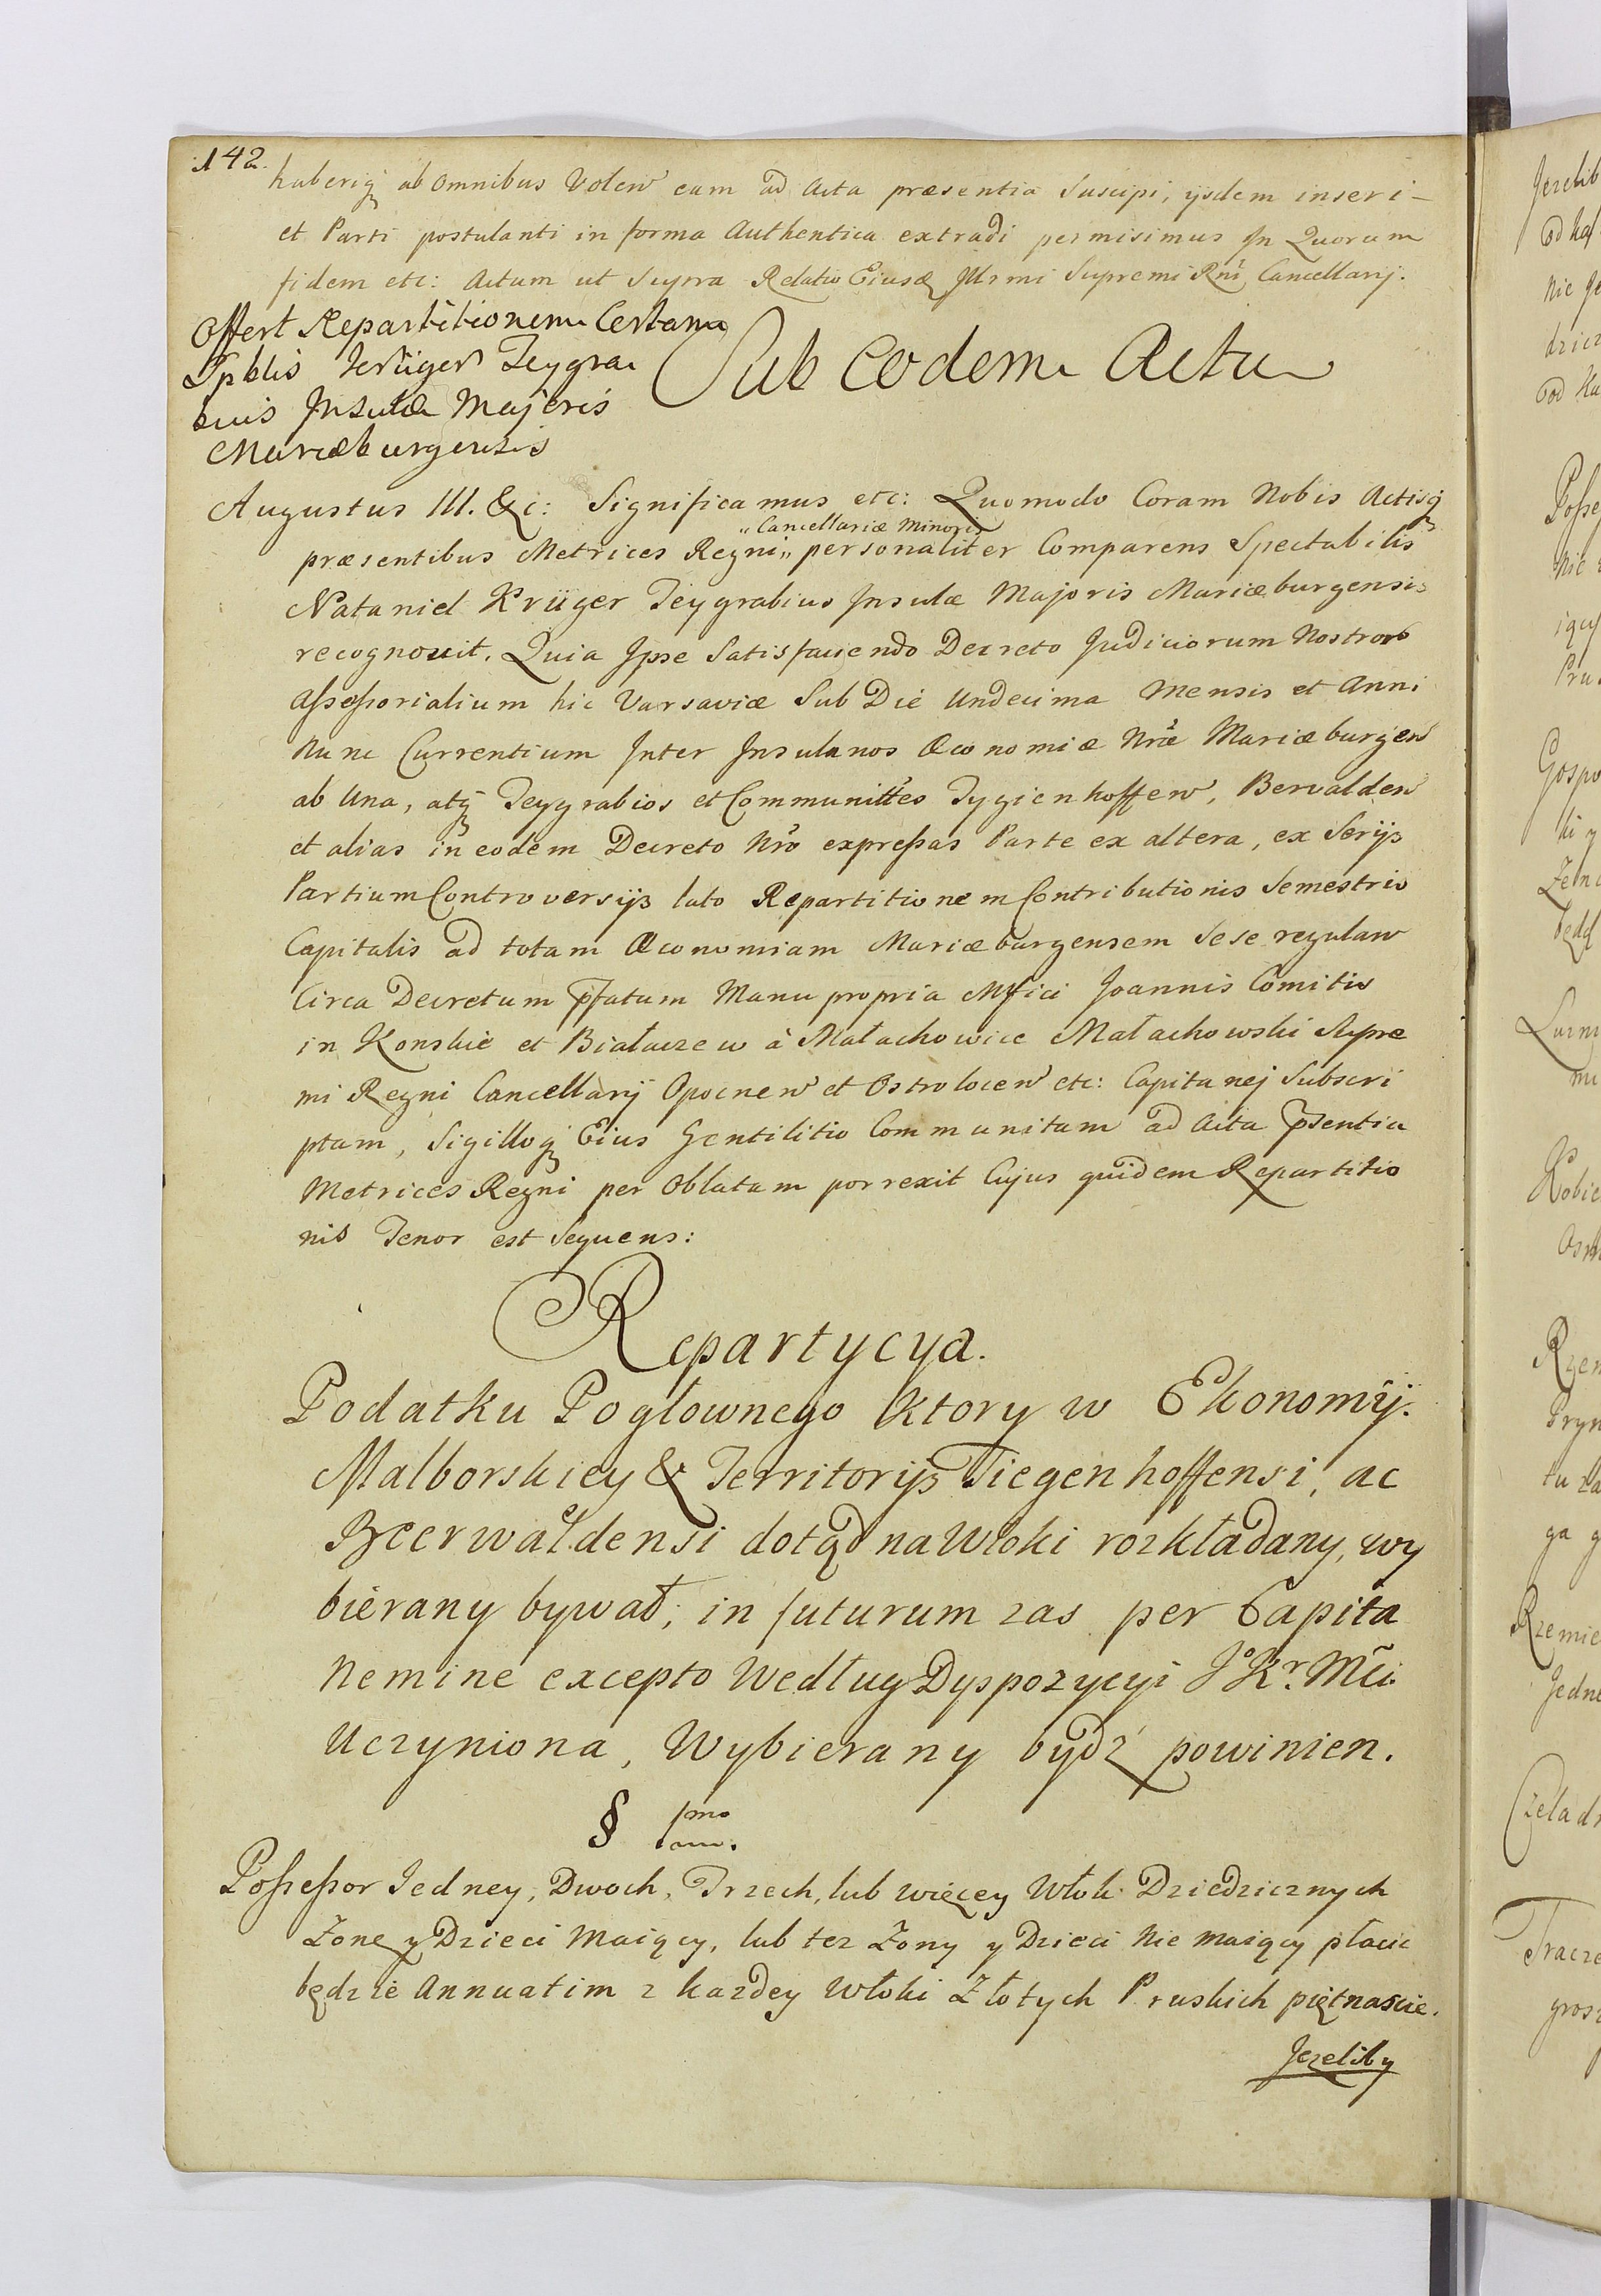 142.
haberiq́ ab omnibus Volen̄ eam ad Acta præsentia Suscipi, ijsdem inseri
et Parti postulanti in forma Authentica extradi permisimus In Quorum
fidem etc: Actum ut Supra Relatio Eiusd Illrmi Supremi Rni Cancellarij.
Offert Repartitionem Certam
Spblis Krüger Teygra
bius Insulæ Majoris
Mariæburgensis
Sub Eodem Actu
Augustus III. &c: Significamus etc: Quomodo Coram Nobis Actisq́
„Cancellariæ Minoris
præsentibus Metrices Regni„ personaliter Comparens Spectabilis
Nataniel Krüger Teygrabius Insulæ Majoris Mariæburgensis
recognovit. Quia Ipse Satisfaciendo Decreto Judiciorum Nostror
Assessorialium hic Varsaviæ Sub Die Undecima Mensis et Anni
Nunc Currentium Inter Insulanos Œconomiæ Nræ Mariæburgen̄
ab Una, atq́ Teygrabios et Communittes Tygienhoffen̄, Bervalden̄
et alias in eodem Decreto Nro expressas Parte ex altera, ex Serijs
Partium Controversijs lato Repartitionem Contributionis Semestris
Capitalis ad totam Œconomiam Mariæburgensem Sese regulan̄
Circa Decretum p̄fatum Manu propria Mfici Joannis Comitis
in Konskie et Białaczew à Małachowice Małachowski Supre
mi Regni Cancellarij Opocnen̄ et Ostrolocen̄ etc: Capitanej Subscri
ptam, Sigilloq́ Eius Gentilitio Communitam ad Acta p̄sentia
Metrices Regni per Oblatam porrexit Cujus quidem Repartitio
nis Tenor est Sequens:
Repartycya.
Podatku Pogłownego Ktory w Ekonomij.
Malborskiey & Territorijs Tiegenhoffensi, ac
Beerwaldensi dotąd na Włoki rozkładany, wy
bierany bywał; in futurum zas per Capita
Nemine excepto Według Dyspozycyi JKr. Mci
Uczyniona, Wybierany bydź powinien.
§ 1mo
Possessor Jedney, Dwoch, Trzech, lub więcey Włok Dziedzicznych
Zonę y Dzieci Maiący, lub tez Zony y Dzieci Nie maiący płacic
będzie Annuatim z kazdey Włoki Złotych Pruskich piętnascie.
Jezeliby